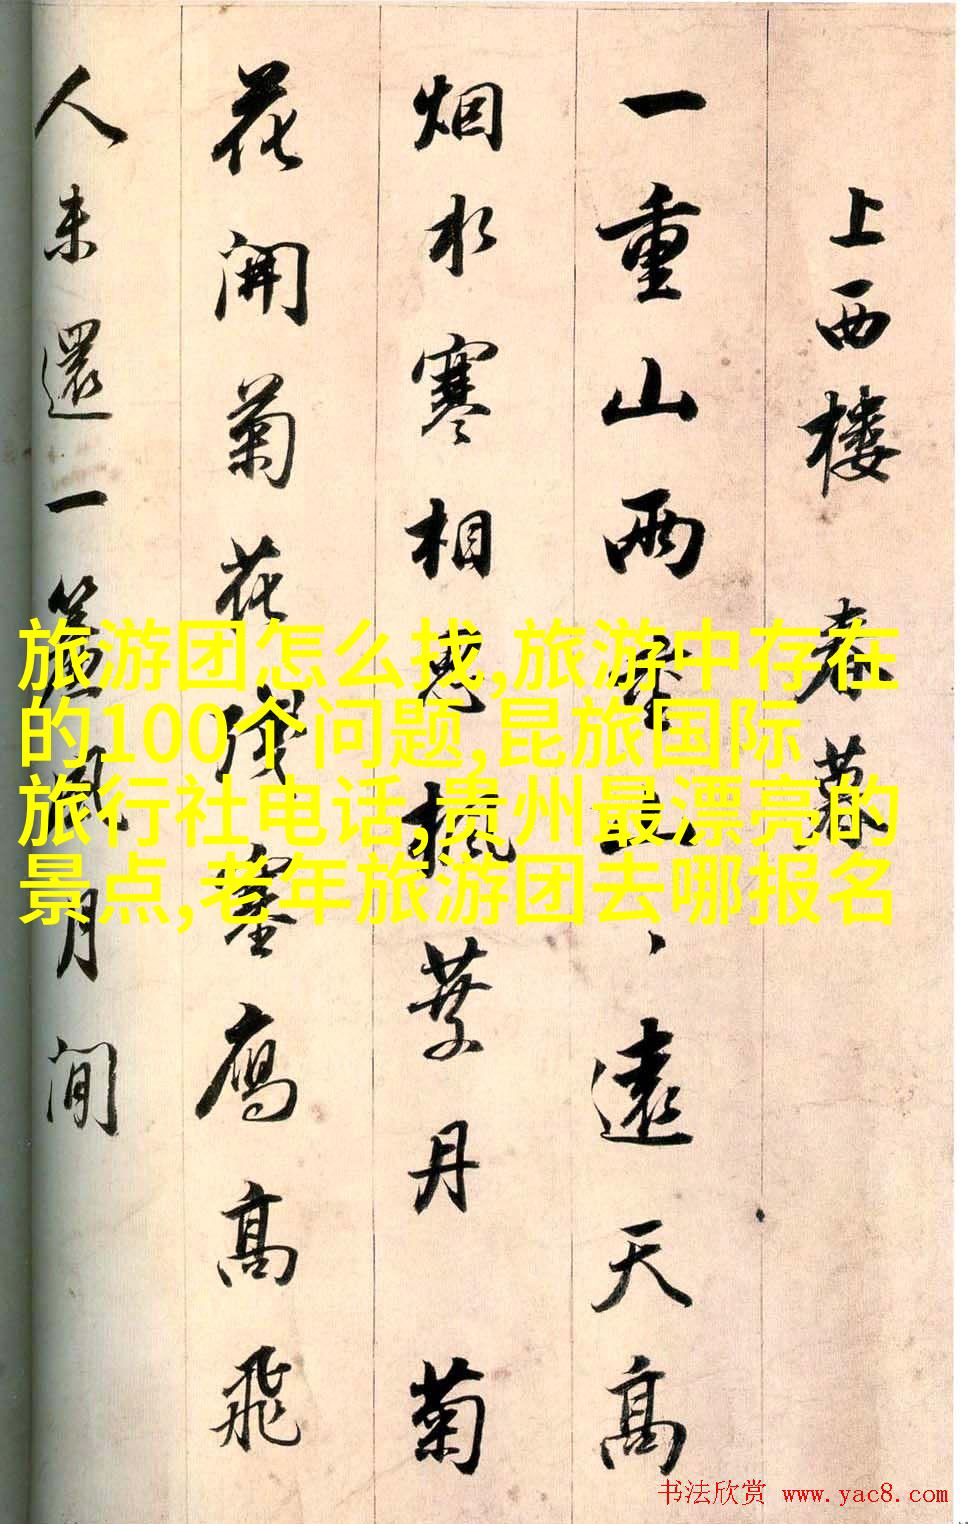 上西楼 春暮
一重山兩重山、遠天高
烟水寒相思楓葉丹菊
花開菊花殘塞鴈高飛
人未還一簾風月閒
旅游团怎么找,旅游中存在
的100个问题,昆旅国际
旅行社电话,贵州最漂亮的
景点,老年旅游团去哪报名
书法欣赏 www.yac8.com